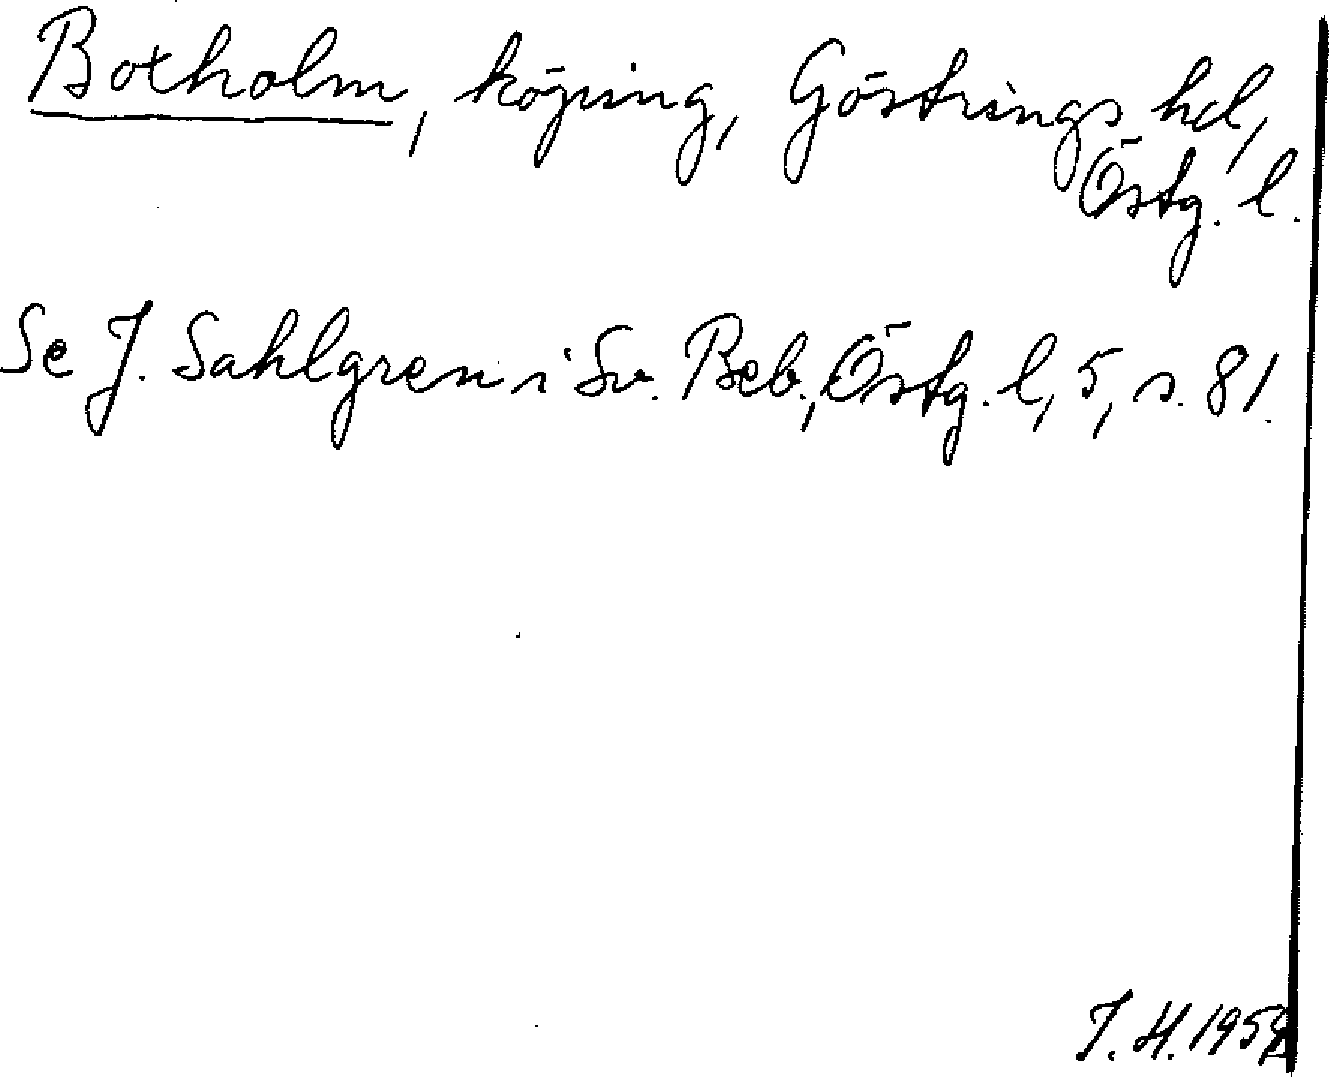 Botholm, köping, Göstrings hd,
Östg. l.
Se J. Sahlgren i Sv. Beb., Östg. l, 5, s. 81.